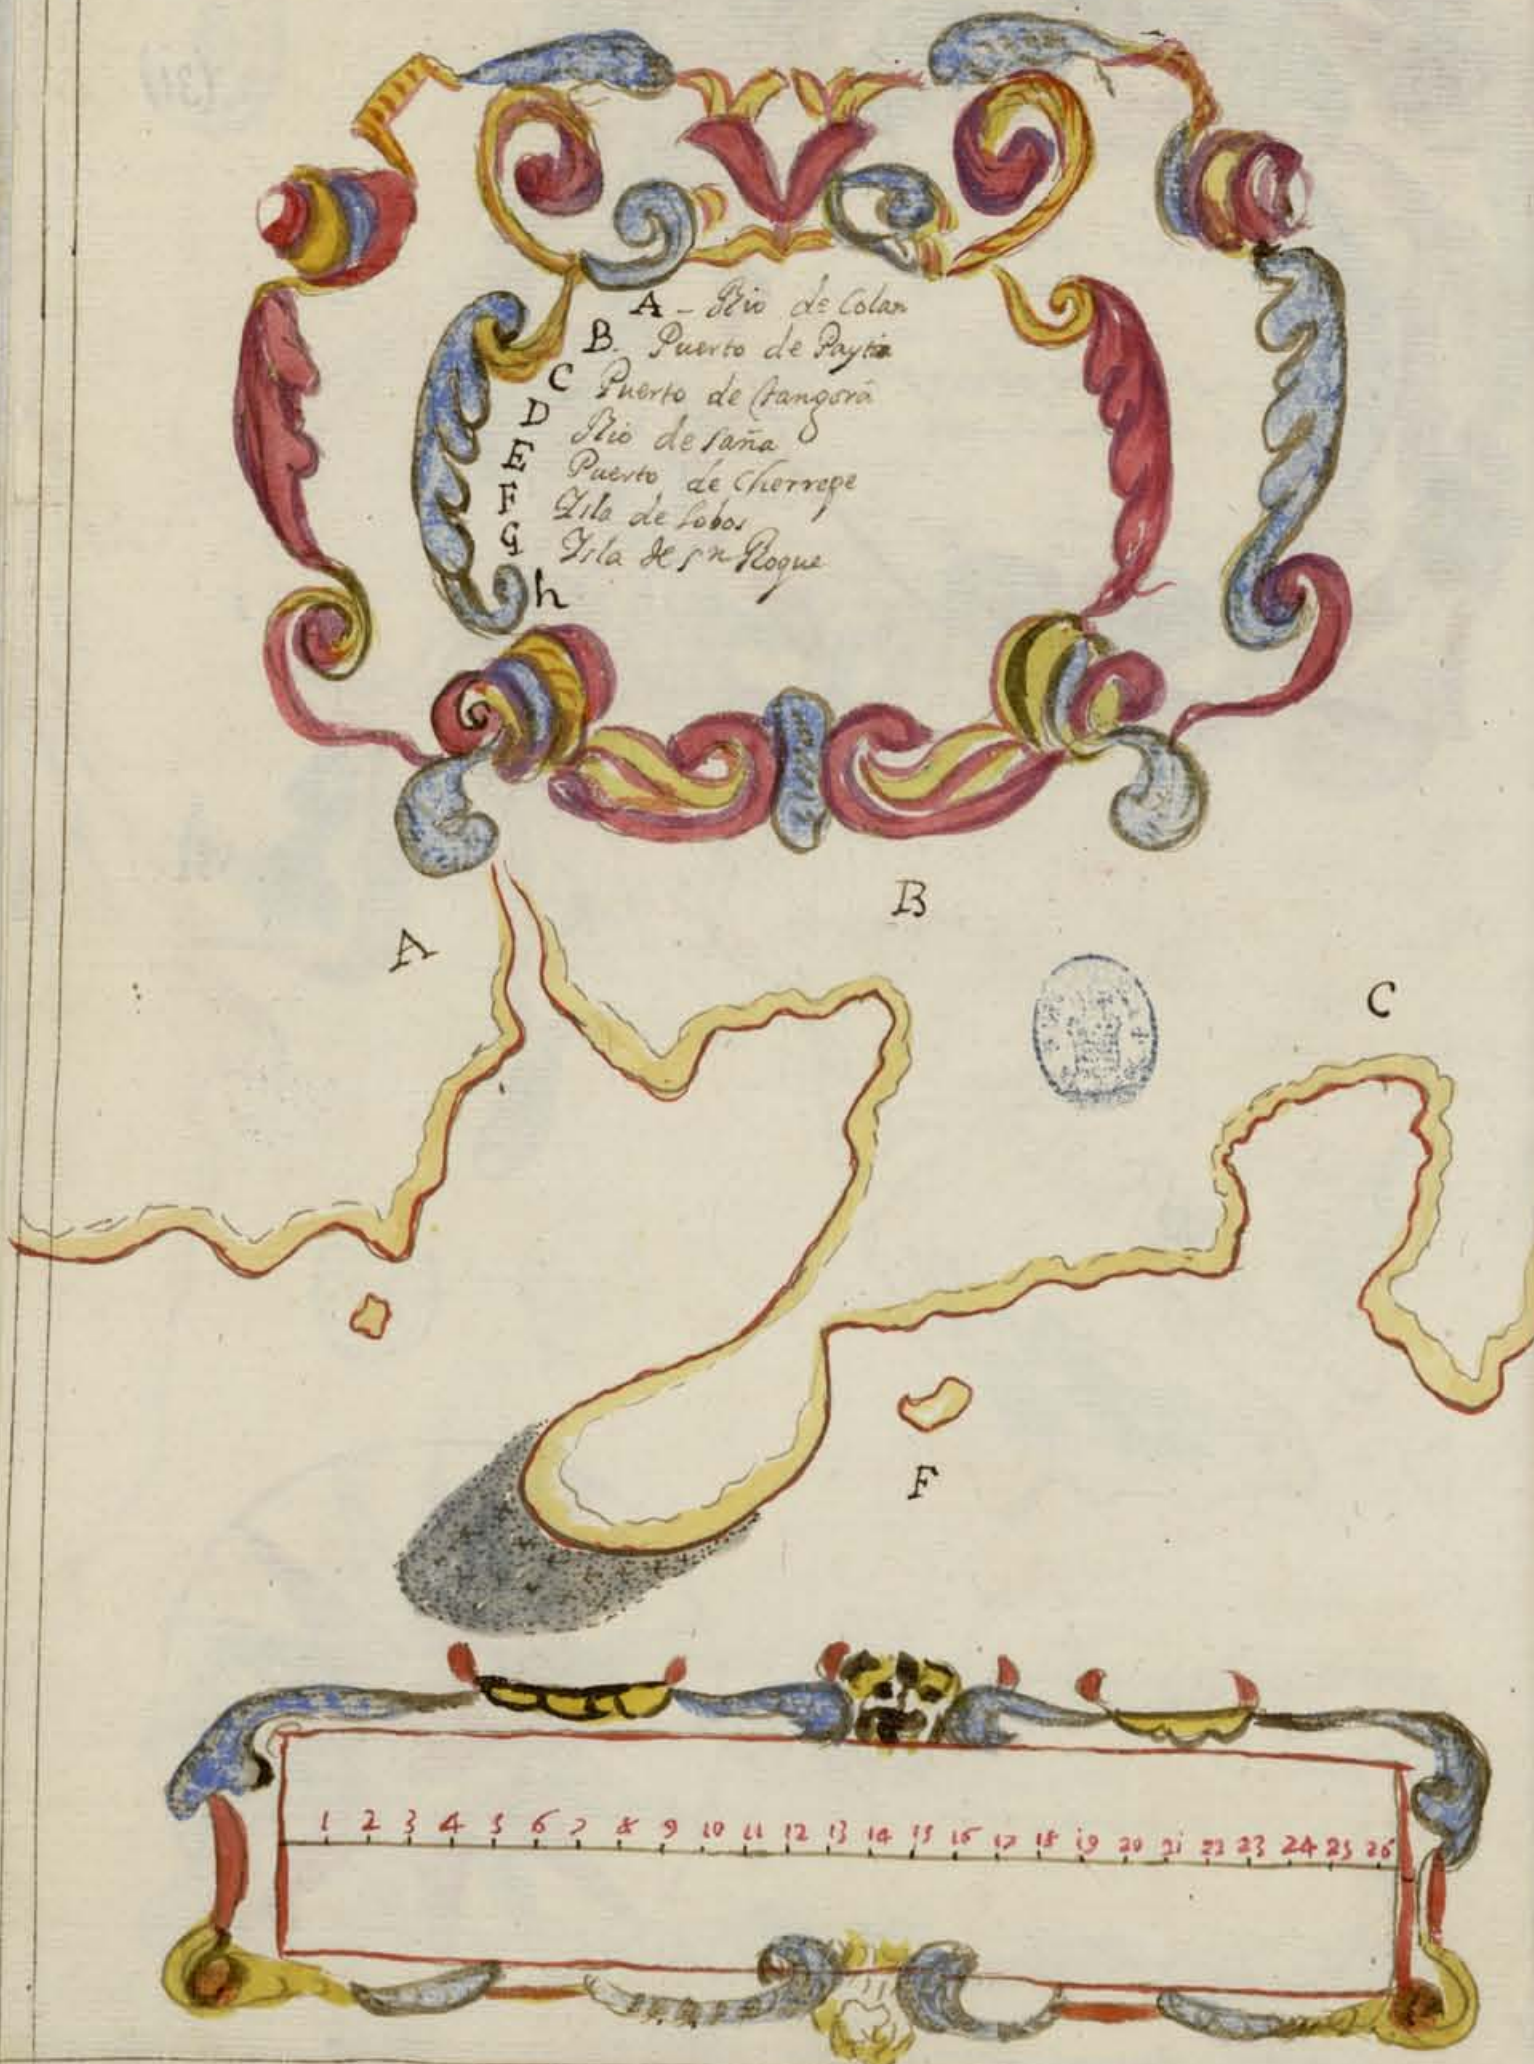 A - Rio de Colan
B. Puerto de Payta
C Puerto de tangorá
D Rio de Saña
E Puerto de Cherrepe
F Isla de Lobos
G Isla de sn Roque
h
B
A
C
F
1 2 3 4 5 6 7 8 9 10 11 12 13 14 15 16 17 18 19 20 21 22 23 24 25 26